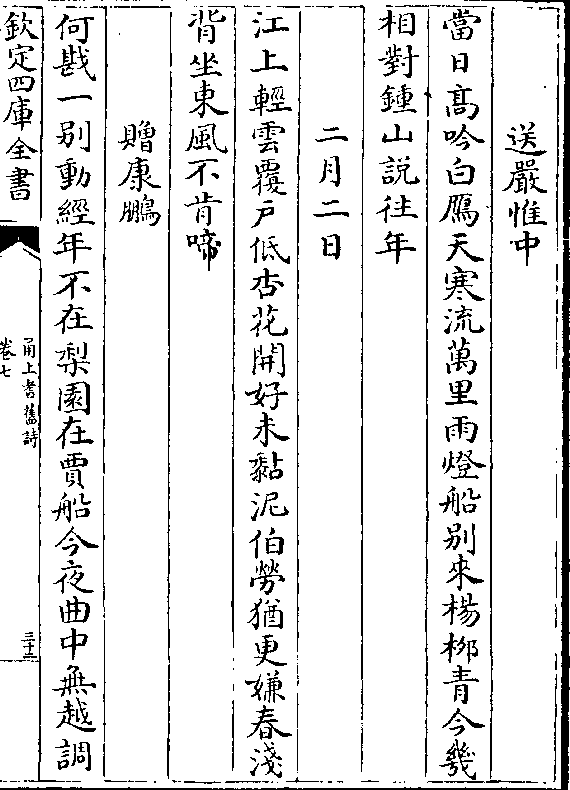 送嚴惟中
當日髙吟白鴈天寒流萬里雨燈船别來楊栁青今幾
相對鍾山説往年
二月二日
江上輕雲覆戸低杏花開好未黏泥伯勞猶更嫌春淺
背坐東風不肯啼
贈康鵬
何戡一别動經年不在棃園在賈船今夜曲中無越調
欽定四庫全書
甬上耆舊詩
卷七
三十三